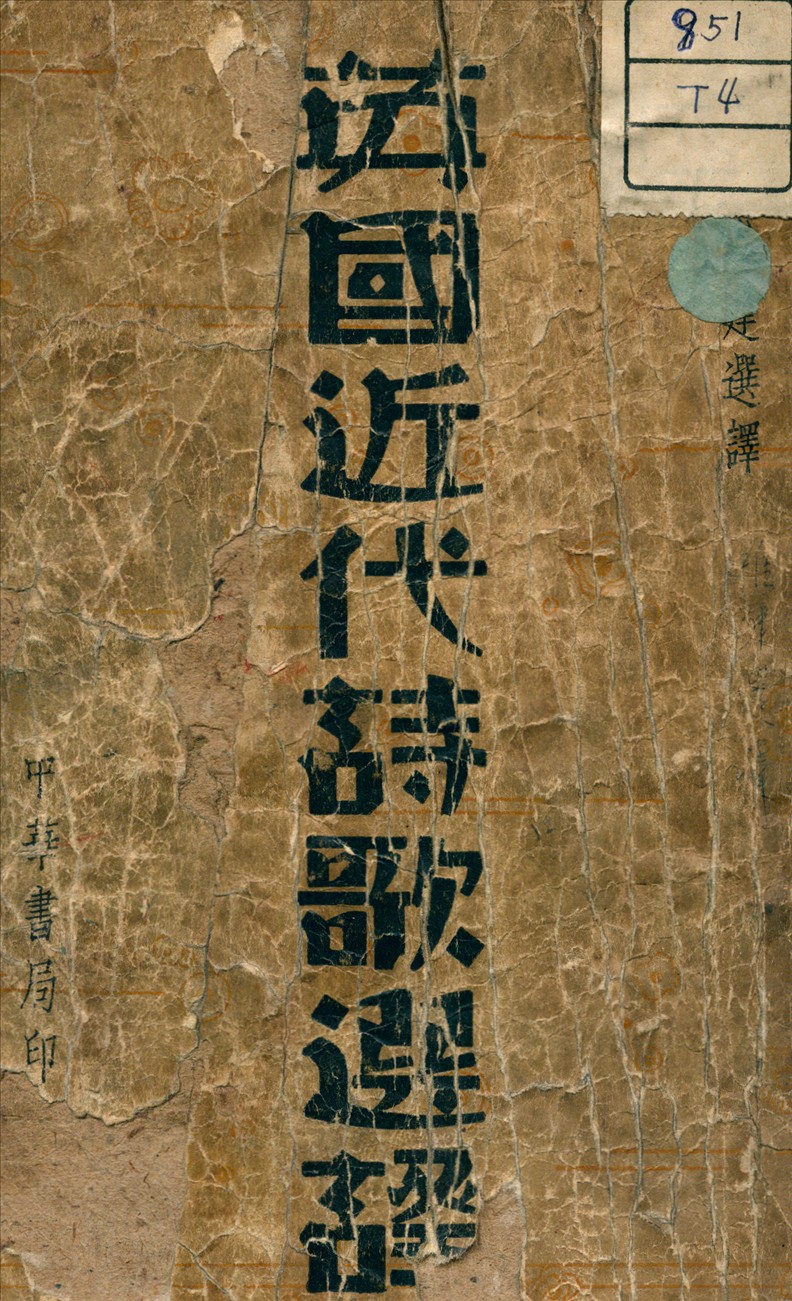 851
T4
建選譯
英國近代詩歌選譯
中華書局印